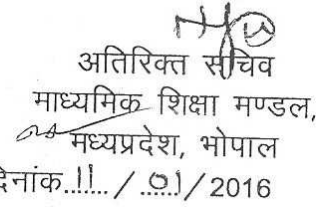 अतिरिक्त सचिव
माध्यमिक शिक्षा मण्डल,
मध्यप्रदेश, भोपाल
दिनांक 11 / 01 / 2016